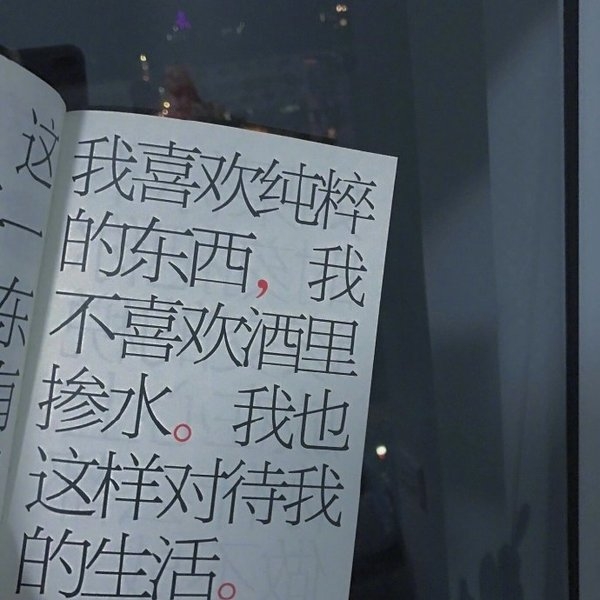 我喜欢纯粹
的东西，我
不喜欢酒里
掺水。我也
这样对待我
的生活。
这
一